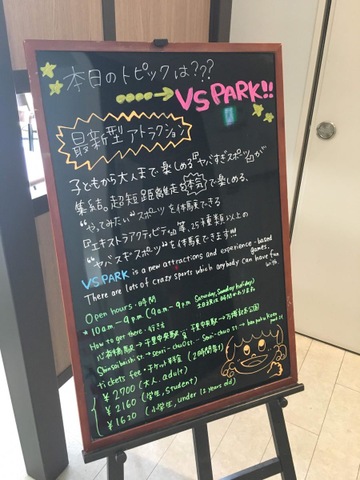 本日のトピックは???
VS PARK!!
最新型アトラクション
子どもから大人まで楽しめる『ヤバすぎスポーツ』が
集結。超短距離走を本気で楽しめる、
"やってみたい"スポーツを体験できる
『エキストラアクティビティ』等、25種類以上の
"ヤバスギスポーツ"を体験できます!!!
VS PARK is a new attractions and experience-based games.
There are lots of crazy sports which anybody can have fun with.
Open hours・時間
*10am-9pm (9am-9pm Saturday, Sunday, holidays)
How to get there・行き方
心斎橋駅→千里中央駅→千里中央駅→万博記念公園
Shinsaibashi st → Senri-chuo st → Senri-chuo st → banpaku koen
tickets fee・チケット料金 (2時間券)
¥2700 (大人, adult)
¥2160 (学生, student)
¥1620 (小学生, under 12 years old)